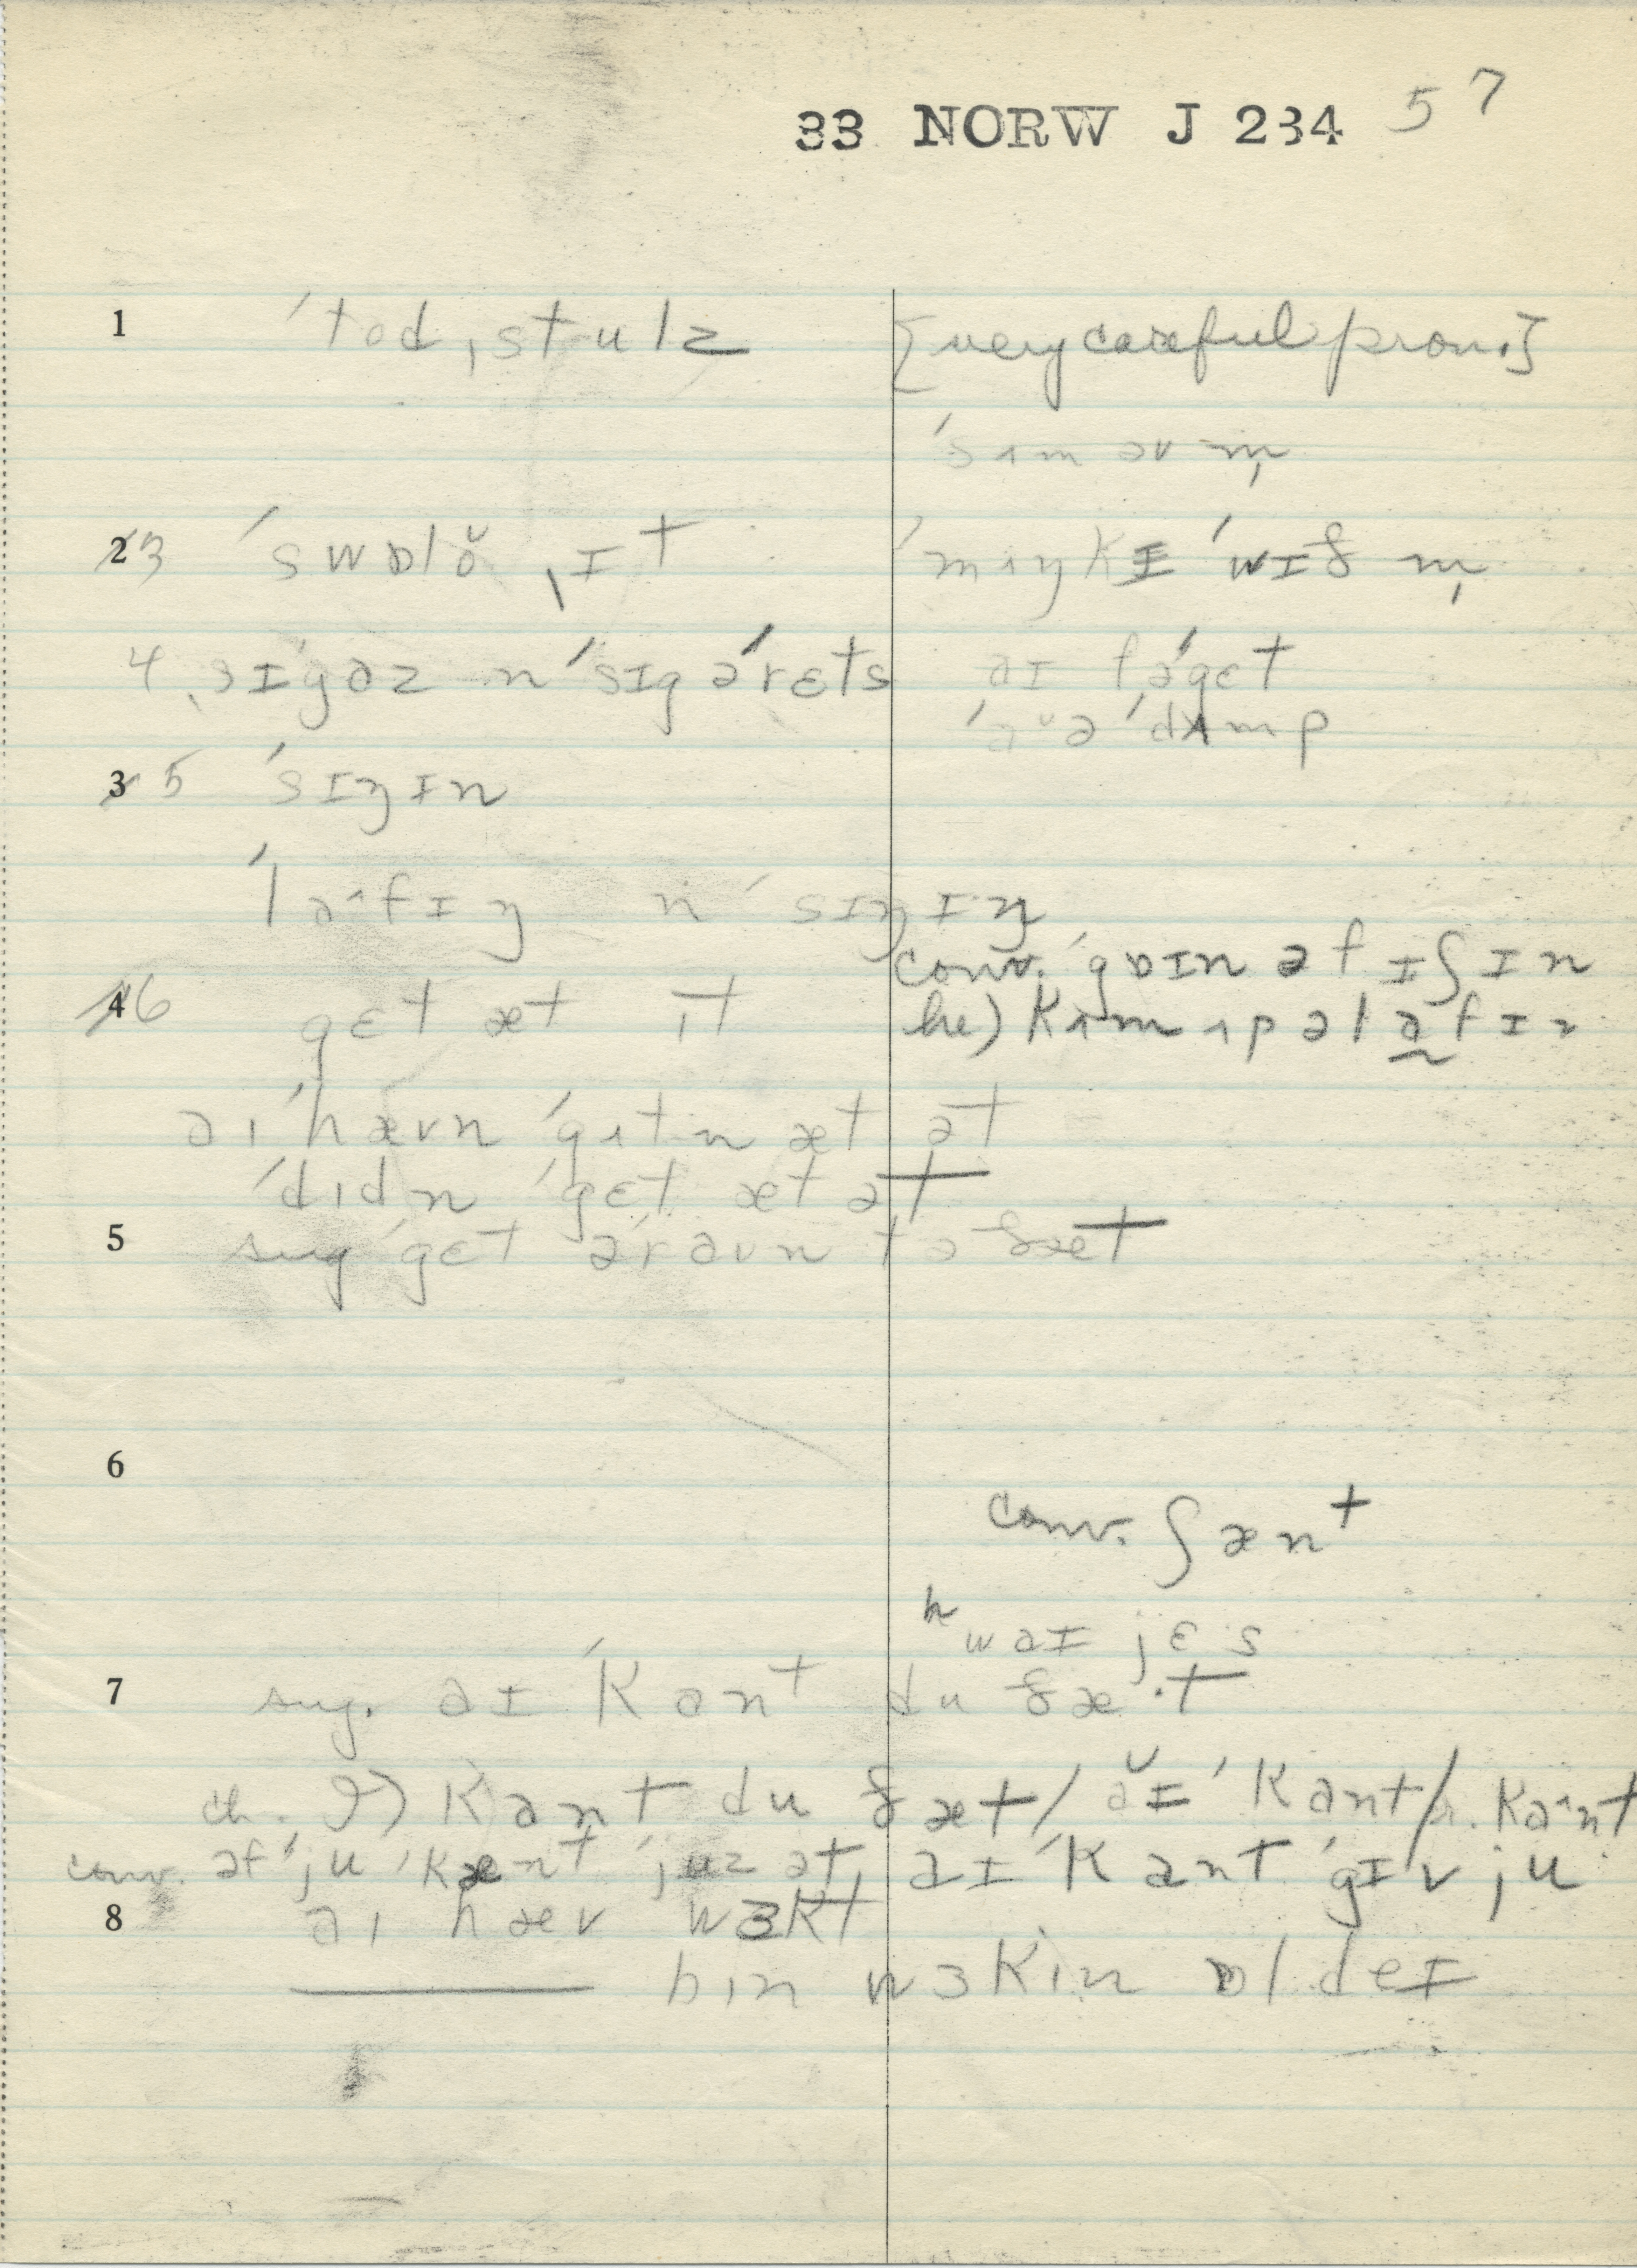 33 NORW J 234 57
1 ˈtod ˌstulz [very careful pron.]
ˈsʌm əv m̩
2 3 ˈswɒlŏ ˌɪt ˈmʌŋkɪ ˈwɪð m̩
4 ˌsɪˈgaz n ˈsɪgəˈrɛts aɪ fəˈgɛt
ˈaᵕə ˈdʌmp
3 5 ˈsɪŋɪn
ˈlaˆfɪŋ n ˈsɪŋɪŋ
conv. ˈgoɪn əfɪʃɪn
4 6 gɛt æt ˌɪt he) kʌm ʌp əlafɪn
aɪ ˈhævn ˈgɪtn æt ət
ˈdɪdn ˈgɛt æt ət
5 sug ˈgɛt əˈraun tə ðæt
6
conv. ʃænt
ʰwaɪ jɛs
7 sug. aɪ ˈkant du ðæ·t
ch. I) kant du ðæt / ăɪ ˈkant / r. kaˆnt
conv. əf ˈju ˈkænt ˈjuz ət, aɪ ˈkant ˈgɪv ju
8 aɪ hæv wɜkt
——— bɪn wɜkɪn ɒl deɪ